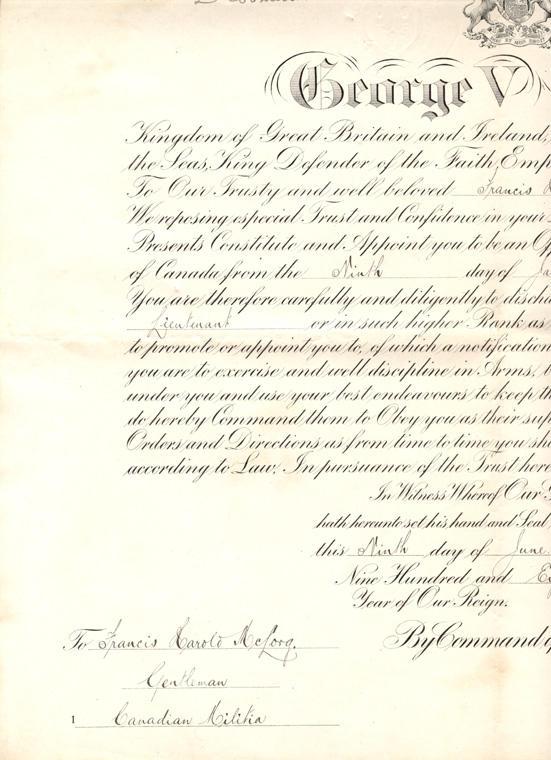 George V
Kingdom of Great Britain and Ireland,
the Seas, King Defender of the Faith, Emp
To Our Trusty and well beloved Francis
We reposing especial Trust and Confidence in your
Presents Constitute and Appoint you to be an Off
of Canada from the Ninth day of Ja
You are therefore carefully and diligently to discha
Lieutenant or in such higher Rank as
to promote or appoint you to, of which a notification
you are to exercise and well discipline in Arms,
under you and use your best endeavours to keep th
do hereby Command them to Obey you as their sup
Orders and Directions as from time to time you sha
according to Law. In pursuance of the Trust here
In Witness Whereof Our
hath hereunto set his hand and Seal
this Ninth day of June
Nine Hundred and
Year of Our Reign.
By Command of
To Francis Harold
Gentleman
1 Canadian Militia